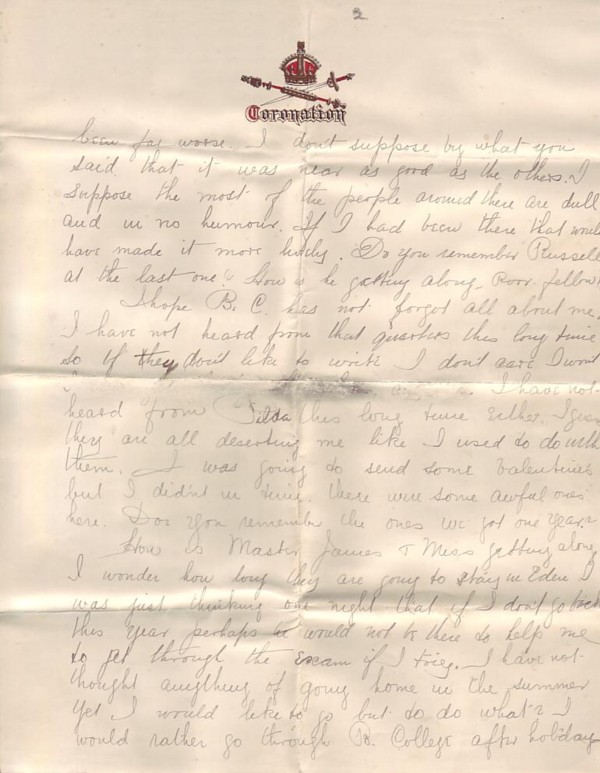 2
Coronation
been far worse. I don't suppose by what you
said that it was near as good as the others. I
suppose the most of the people around there are dull
and in no humour. If I had been there that would
have made it more lively. Do you remember Russell
at the last one? How is he getting along, Poor fellow
I hope B. C. has not forgot all about me,
I have not heard from that quarters this long time
so if they don't like to write I don't care I wont
I have not
heard from Tilda this long time either. I guess
they are all deserting me like I used to do with
them. I was going to send some valentines
but I didn't in time. there were some awful ones
here. Do you remember the ones we got one year?
How is Master James & Miss getting along
I wonder how long they are going to stay in Eden I
was just thinking one night that if I don't go back
this year perhaps he would not be there to help me
to get through the exam if I try. I have not
thought anything of going home in the summer
yet I would like to go but to do what? I
would rather go through College after holiday